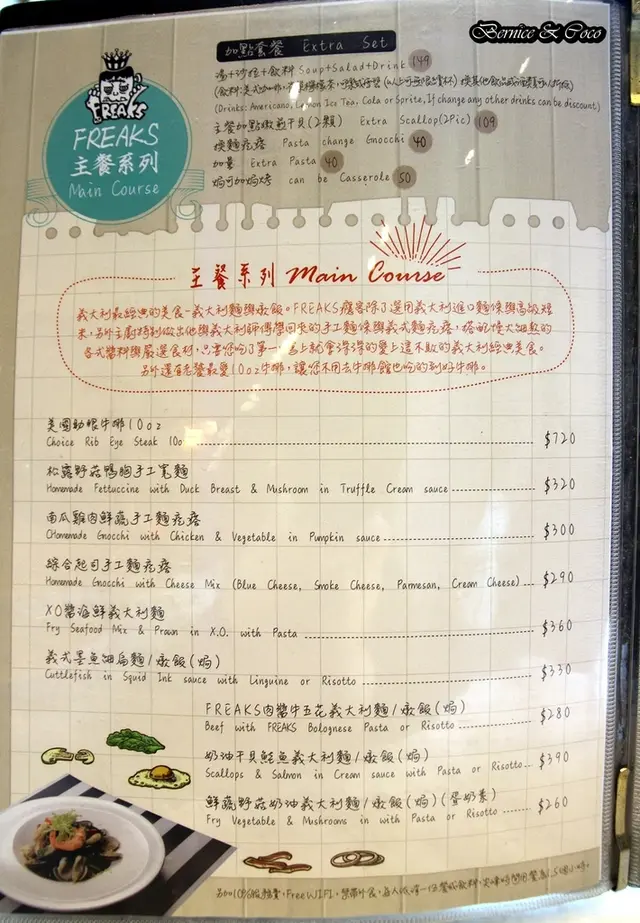 Bernice & Coco
加點套餐 Extra Set
湯+沙拉+飲料 Soup+Salad+Drink 149
(Drinks: Americano, Lemon Ice Tea, Cola or Sprite, If change any other drinks can be discount)
主餐加點嫩煎干貝(2顆) Extra Scallop(2Pic) 109
換麵疙瘩 Pasta change Gnocchi 40
加量 Extra Pasta 40
焗可加焗烤 can be Casserole 50
FREAKS
FREAKS
主餐系列
Main Course
主餐系列 Main Course
義大利最經典的美食-義大利麵與燉飯。FREAKS癮客除了選用義大利進口麵條與高級短
米,另外主廚特制做出他與義大利師傅學回來的手工麵條與義式麵疙瘩,搭配慢火細熬的
各式醬料與嚴選食材,只要您吃了第一口馬上就會深深的愛上這不敗的義大利經典美食。
另外還有老饕最愛10oz牛排,讓您不用去牛排館也吃的到好牛排。
美國肋眼牛排10oz
Choice Rib Eye Steak 10o $720
松露野菇鴨胸手工寬麵
Homemade Fettuccine with Duck Breast & Mushroom in Truffle Cream sauce $320
南瓜雞肉鮮蔬手工麵疙瘩
CHomemade Gnocchi with Chicken & Vegetable in Pumpkin sauce $300
綜合起司手工麵疙瘩
Homemade Gnocchi with Cheese Mix (Blue Cheese, Smoke Cheese, Parmesan, Cream Cheese) $290
XO醬海鮮義大利麵
Fry Seafood Mix & Prawn in X.O. with Pasta $360
義式墨魚細扁麵/燉飯(焗)
Cuttlefish in Squid Ink sauce with Linguine or Risotto $330
FREAKS肉醬牛五花義大利麵/燉飯(焗)
Beef with FREAKS Bolognese Pasta or Risotto $280
奶油干貝鮭魚義大利麵/燉飯(焗)
Scallops & Salmon in Cream sauce with Pasta or Risotto $390
鮮蔬野菇奶油義大利麵/燉飯(焗)(蛋奶素)
Fry Vegetable & Mushrooms in with Pasta or Risotto $260
另加10%服務費,Free WIFI,禁帶外食,每人低消一份餐或飲料,